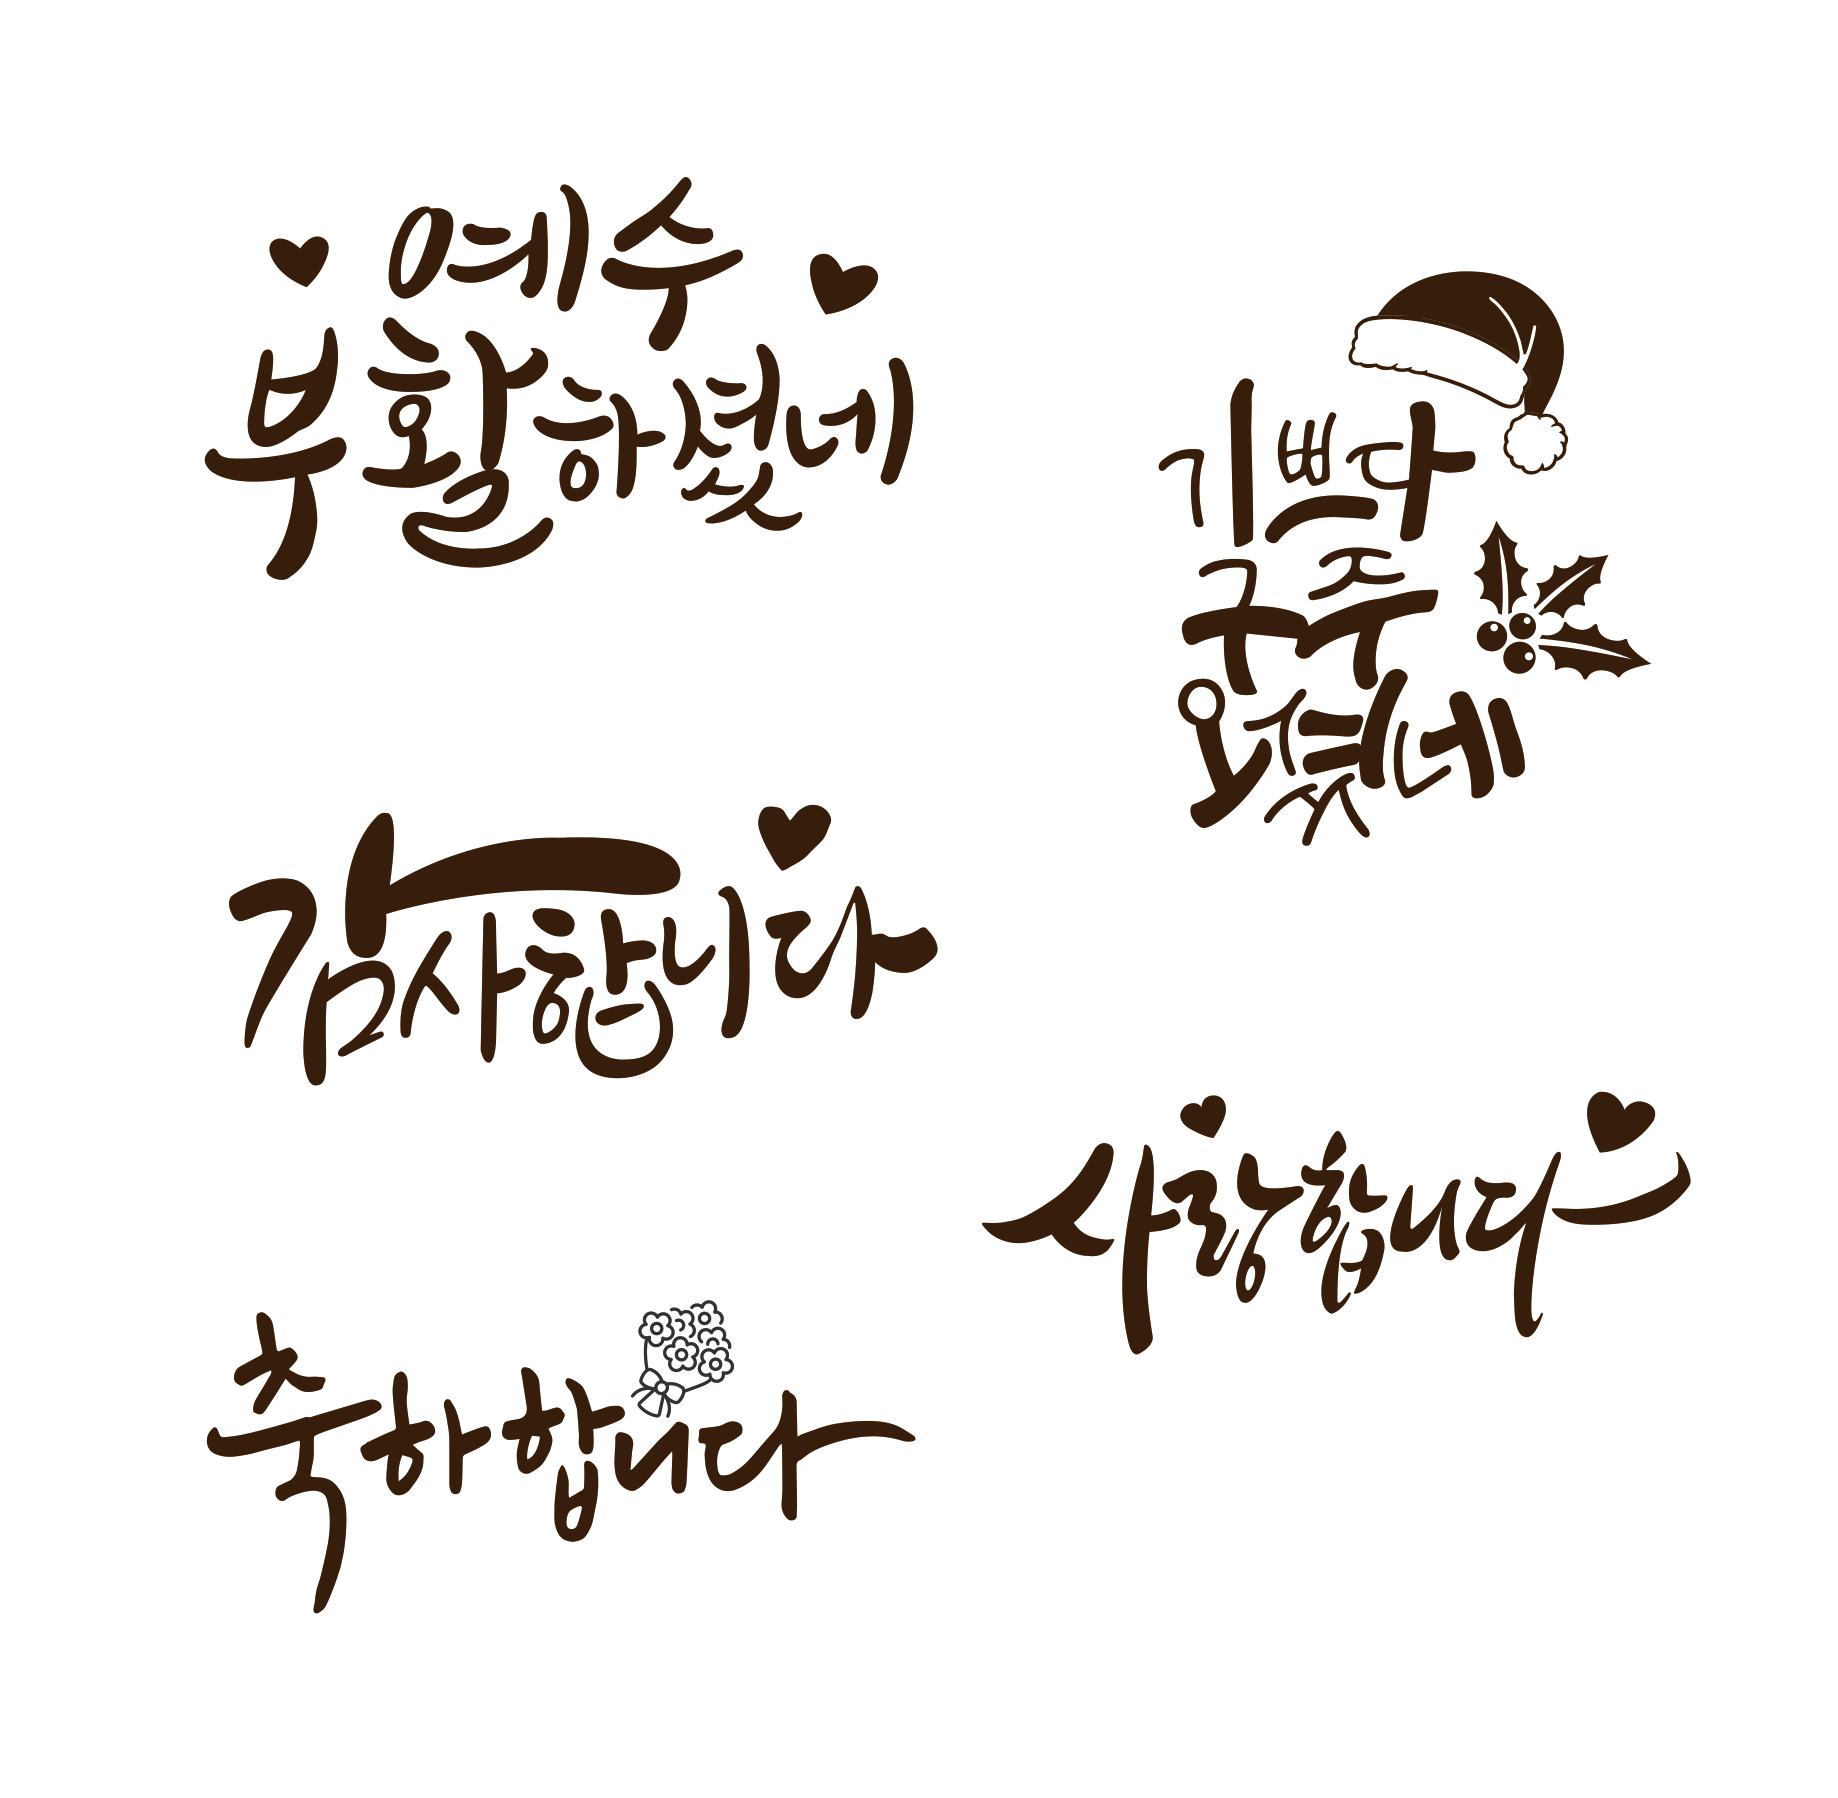 예수
부활하셨네
기쁘다
구주
오셨네
감사합니다
사랑합니다
축하합니다